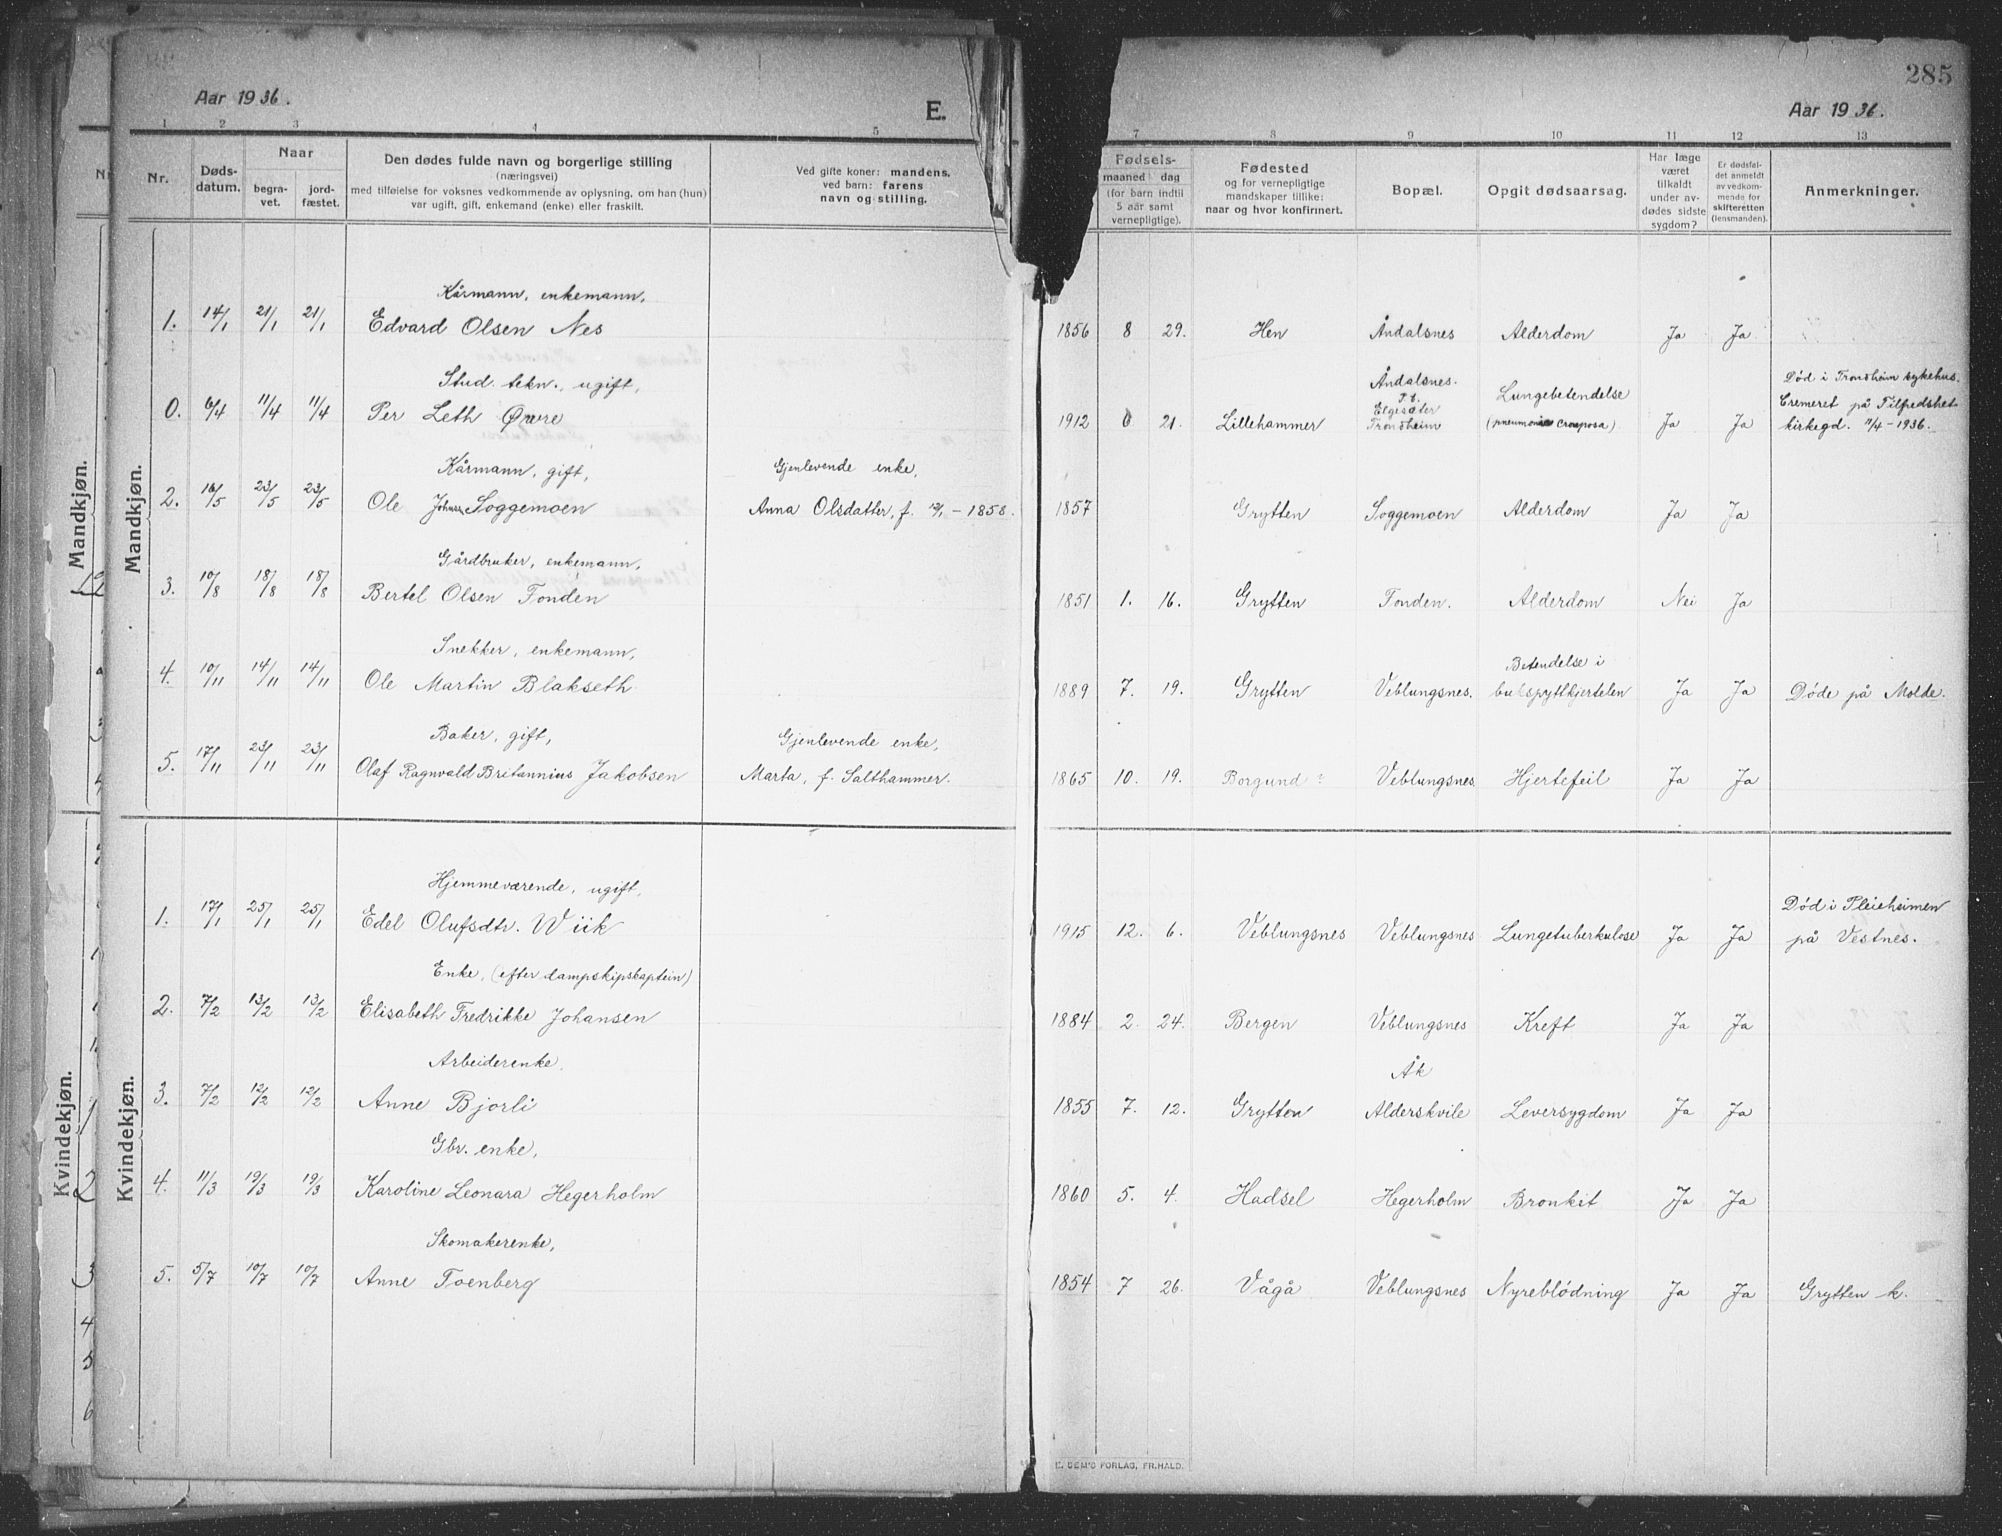 285
Aar 1936.
E.
Aar 1936.
1 2 3 4 5 7 8 9 10 11 12 13
Nr.
Døds-
datum.
Naar
begra-
vet.
jord-
fæstet.
Den dødes fulde navn og borgerlige stilling
(næringsvei)
med tilføielse for voksnes vedkommende av oplysning, om han (hun)
var ugift, gift, enkemand (enke) eller fraskilt.
Ved gifte koner: mandens.
ved barn: farens
navn og stilling.
Fødsels-
maaned dag
(for barn indtil
5 aar samt
vernepligtige).
Fødested
og for vernepligtige
mandskaper tillike:
naar og hvor konfirmert.
Bopæl.
Opgit dødsaarsag.
Har læge
været
tilkaldt
under av-
dødes sidste
sygdom?
Er dødsfal-
det anmeldt
av vedkom-
mende for
skifteretten
(lensmanden).
Anmerkninger.
Mandkjøn.
Mandkjøn.
Kårmann, enkemann,
1. 14/1 21/1 21/1 Edvard Olsen Nes 1856 8 29. Hen Åndalsnes Alderdom Ja Ja
Stud. tekn., ugift, Åndalsnes. Død i Trondheim sykehus.
0. 6/4 11/4 11/4 Per Leth Øvre 1912 6 21. Lillehammer P.t. Elgesæter Trondheim Lungebetendelse (pneumonia crouposa) Ja Ja Cremeret på Tilfredshet-
kirkegd. 11/4-1936.
Kårmann, gift, Gjenlevende enke,
2. 16/5 23/5 23/5 Ole Johnsen Soggemoen Anna Olsdatter, f. 12/1-1858. 1857 Grytten Soggemoen Alderdom Ja Ja
Gårdbruker, enkemann,
3. 10/8 18/8 18/8 Bertel Olsen Fonden 1851 1. 16. Grytten Fonden. Alderdom Nei Ja
Snekker, enkemann, Betendelse i
4. 10/11 14/11 14/11 Ole Martin Blakseth 1889 7. 19. Grytten Veblungsnes. bukspyttkjertelen Ja Ja Døde på Molde.
Baker, gift, Gjenlevende enke,
5. 17/11 23/11 23/11 Olaf Ragnvald Britannius Jakobsen Marta, f. Salthammer. 1865 10. 19. Borgund? Veblungsnes. Hjertefeil Ja Ja
Kvindekjøn.
Kvindekjøn.
Hjemmeværende, ugift, Død i Pleieheimen
1. 17/1 25/1 25/1 Edel Olufsdtr. Wiik 1915 12. 6. Veblungsnes Veblungsnes Lungetuberkulose Ja Ja på Vestnes.
Enke, (efter dampskipskaptein)
2. 7/2 13/2 13/2 Elisabeth Fredrikke Johansen 1884 2. 24. Bergen Veblungsnes Kreft Ja Ja
Arbeiderenke. Åk
3. 7/2 12/2 12/2 Anne Bjorli 1855 7. 12. Grytten Alderskvile Leversygdom Ja Ja
Gbr. enke,
4. 11/3 19/3 19/3 Karoline Leonara Hegerholm 1860 5. 4. Hadsel Hegerholm Bronkit Ja Ja
Skomakerenke,
5. 5/7 10/7 10/7 Anne Toenberg 1854 7 26. Vågå Veblungsnes Nyreblödning Ja Ja Grytten k.
SEM'S FORLAG, FR.HALD.